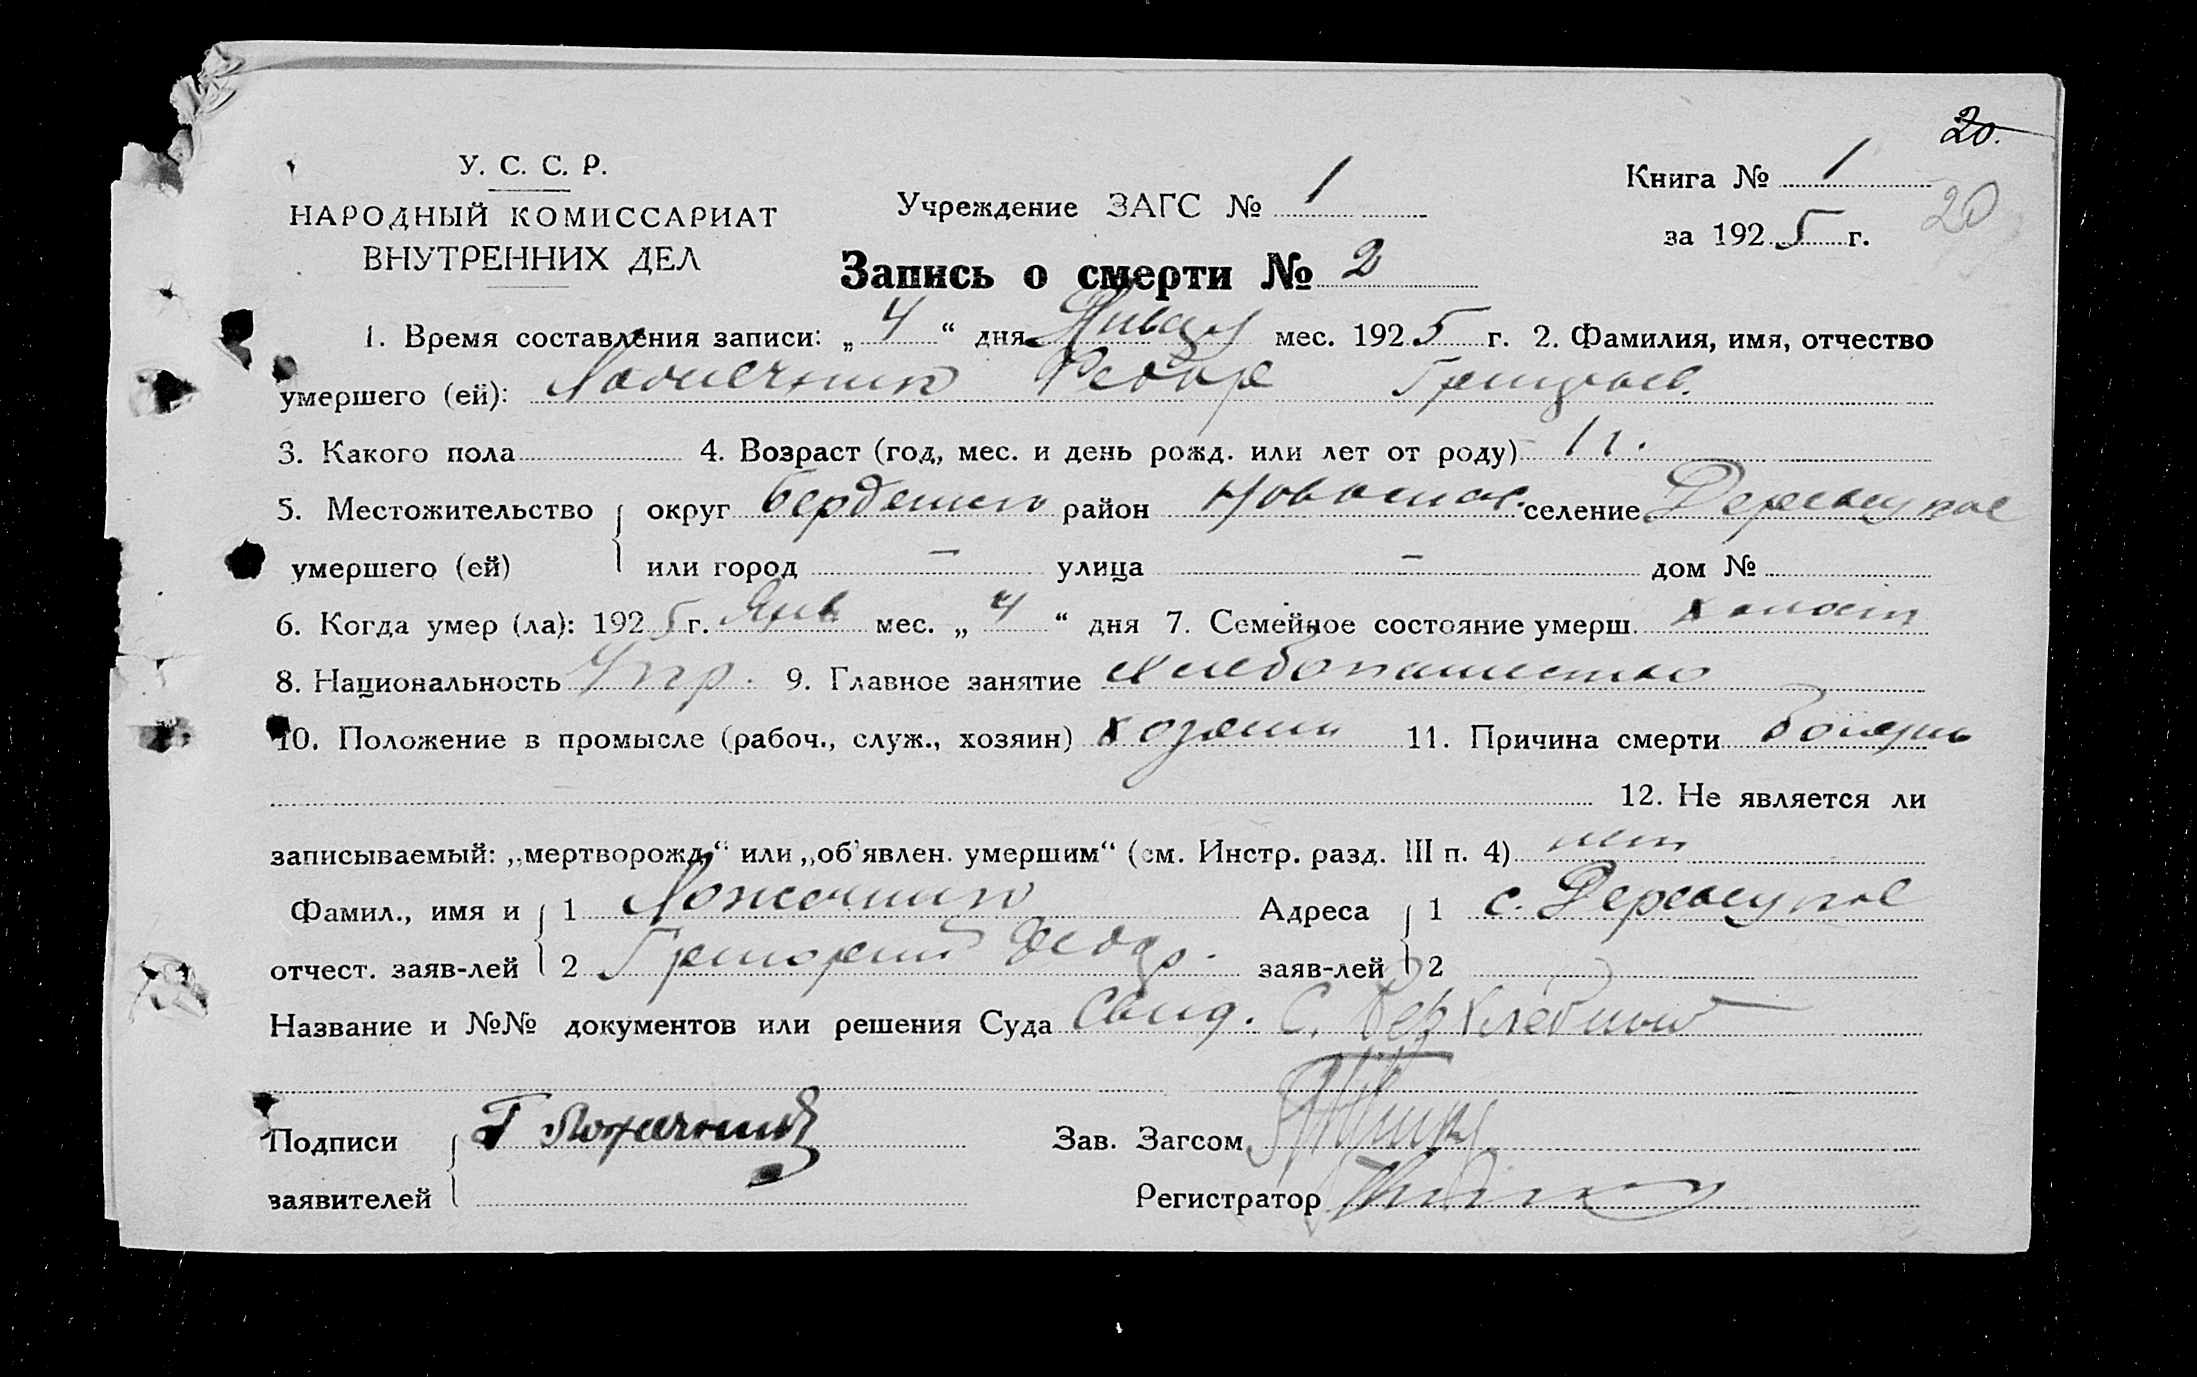 20.
У. С. С. Р.
НАРОДНЫЙ КОМИССАРИАТ
ВНУТРЕННИХ ДЕЛ
Учреждение ЗАГС № 1
Книга № 1
20
за 1925 г.
Запись о смерти № 2
1. Время составления записи: „4“ дня Января мес. 1925 г. 2. Фамилия, имя, отчество
умершего (ей): Ложечник Федор Григорьев.
3. Какого пола 4. Возраст (год, мес. и день рожд. или лет от роду) 1 г.
5. Местожительство округ Бердичев район селение
умершего (ей) или город – улица – дом №
6. Когда умер (ла): 1925 г. Янв мес. „4“ дня 7. Семейное состояние умерш. холост
8. Национальность Укр. 9. Главное занятие хлебопашество
10. Положение в промысле (рабоч., служ., хозяин) хозяин 11. Причина смерти болезнь
12. Не является ли
записываемый: „мертворожд.“ или „об'явлен. умершим“ (см. Инстр. разд. III п. 4) нет
Фамил., имя и 1 Ложечник Адреса 1 с.
отчест. заяв-лей 2 Григорий Федор. заяв-лей 2
Название и №№ документов или решения Суда Свид. С.
Подписи Г Ложечник Зав. Загсом
заявителей Регистратор